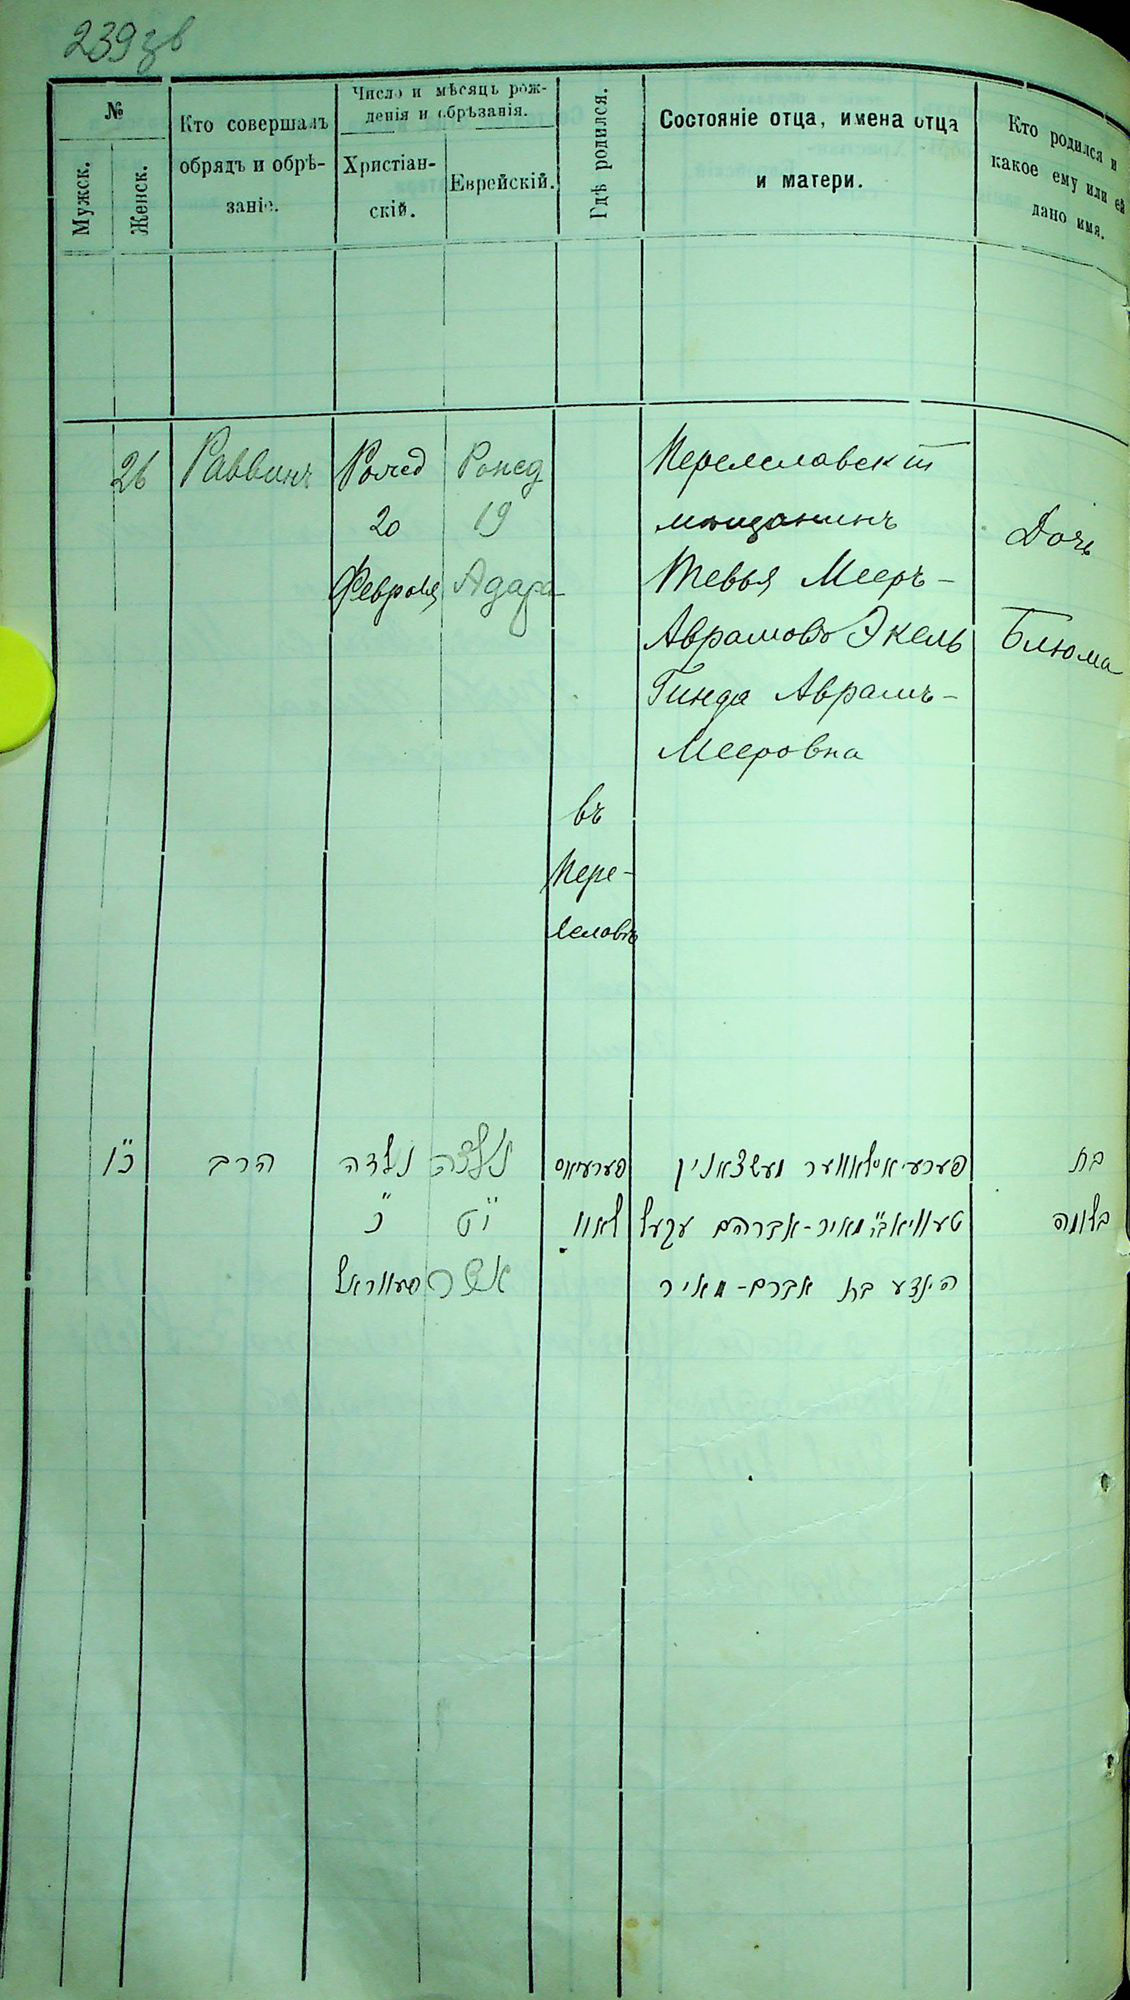 239зв
№
Мужск.
Женск.
Кто совершалъ
обрядъ и обрѣ-
заніе.
Число и мѣсяцъ рож-
денія и обрѣзанія.
Христіан-
скій.
Еврейскій.
Гдѣ родился.
Состояніе отца, имена отца
и матери.
Кто родился и
какое ему или ей
дано имя.
26
Раввинъ
Рожд
20
Февраля
Рожд
19
Адара
въ
Пере-
яславѣ
Переяславскій
мѣщанинъ
Тевья Мееръ-
Аврамовъ Экель
Гинда Аврамъ-
Мееровна
Дочь
Блюма
כ״ו
הרב
נולדה
כ״
פעווראל
נולדה
י״ט
אדר
פערעיאס
לאוו
פערעיאסלאווער מעשצאנין
טעוויא ב״ר מאיר-אברהם עקעל
הינדע בת אברם-מאיר
בת
בלומה